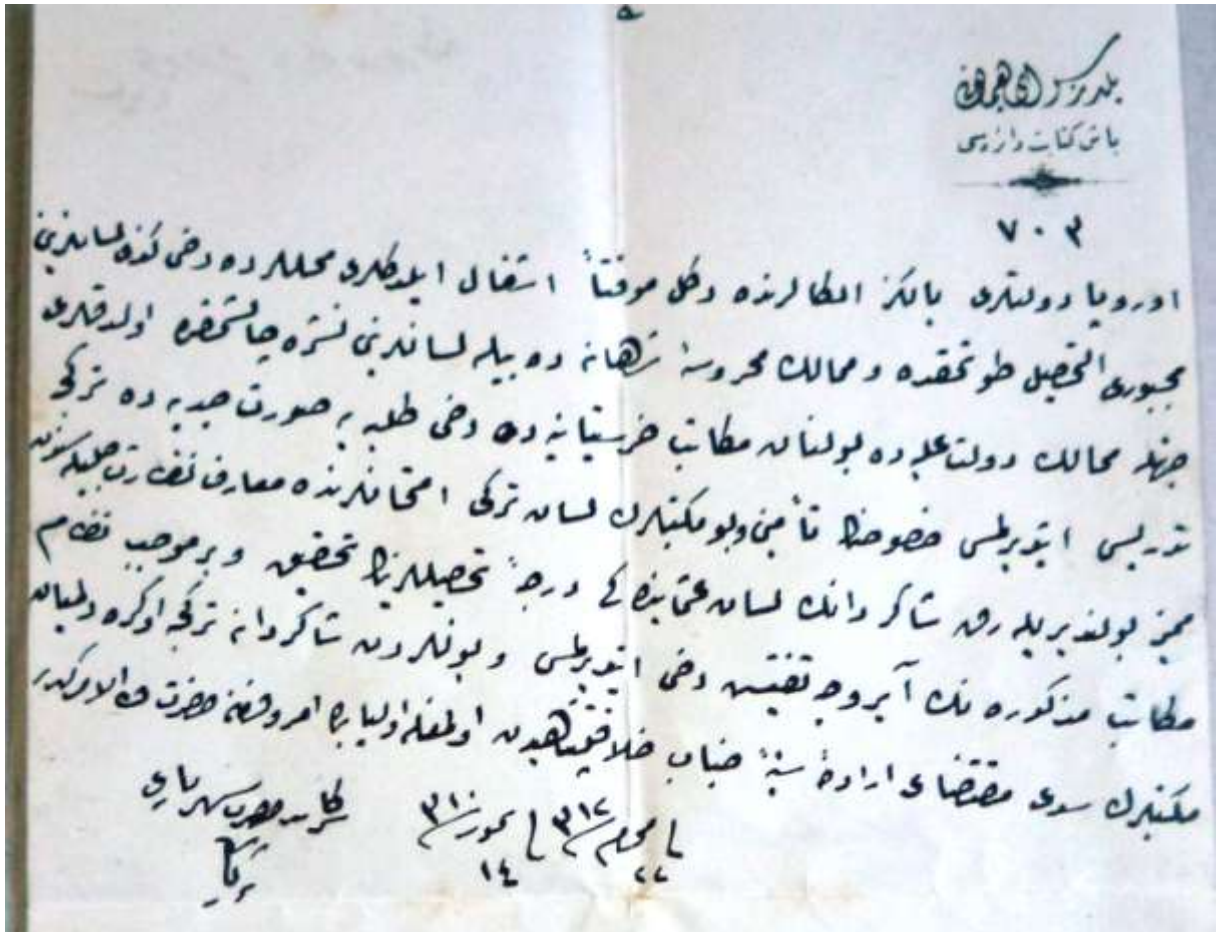 یلدیز سرای همایونی
باش کتابت دائره‌سی
٧٠٣
اوروپا دولتلری یالکز ... دکل موقتاً اشغال ایلدکلری محللرده دخی کندی لسانلرینی
مجبوری التحصیل طوتمقده و ممالك محروسهٔ شاهانه ده بیله لسانلرینی نشره چالشمقده اولدقلری
جهتله ممالك دولت علیه ده بولنان مکاتب خرستیانیه ده دخی طلبه یه صورت جدیه ده ترکجه
تدریس ایتدیرلمسی خصوصنك تأمینی و بو مکتبلرك لسان ترکی امتحانلرنده معارف نظارت جلیله سندن
ممیز بولندیریله رق شاکردانك لسان عثمانیده کی درجهٔ تحصیللرینك تحقیق و بر موجب نظام
مکاتب مذکوره نك آیروجه تفتیش دخی ایتدیرلمسی و بونلردن شاکردانه ترکجه اوکره دلمیان
مکتبلرك سدی مقتضای ارادهٔ سنیهٔ جناب خلافتپناهیدن اولمغله اولبابده امر و فرمان حضرت من له الامرکدر
فی ٢٢ محرم ٣١٢ فی ١٤ تموز ٣١٠
سرکاتب حضرت شهریاری
ثریا